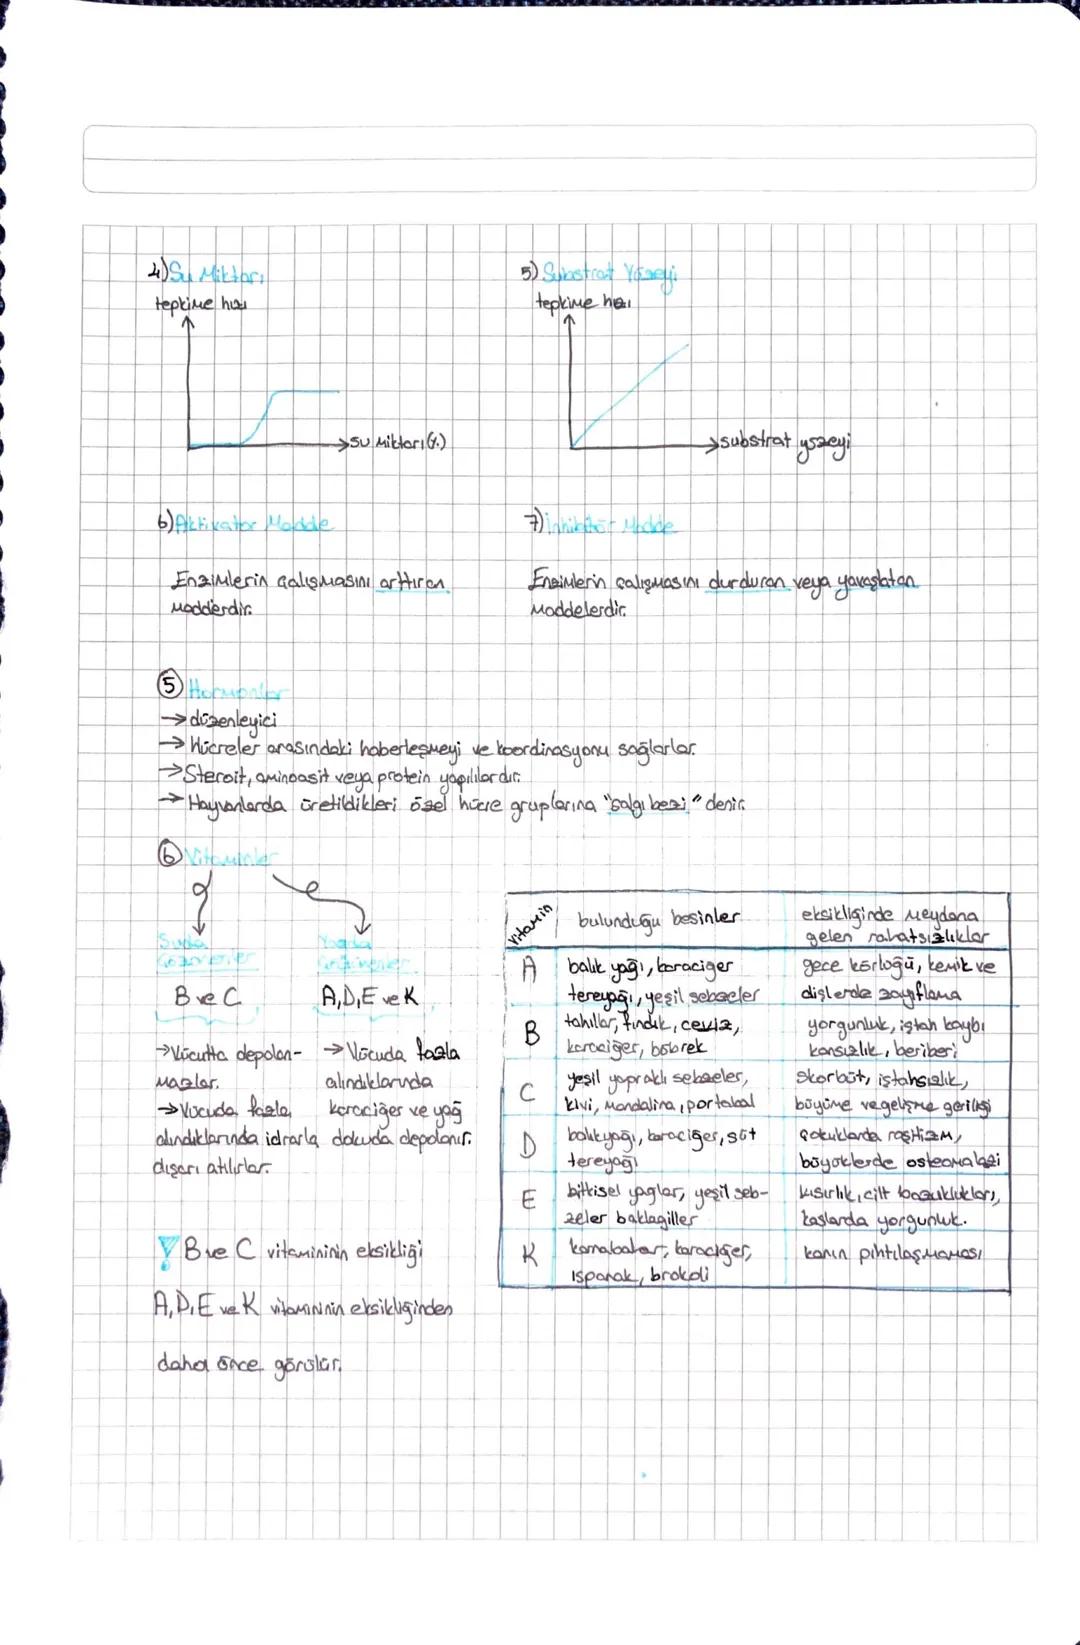 4) Su Miktarı
tepkime hızı
su miktarı(%)
5) Substrat Yüzeyi
tepkime hızı
substrat yüzeyi
6) Aktivatör Madde
Enzimlerin çalışmasını arttıran
madderdir.
7) İnhibitör Madde
Enzimlerin çalışmasını durduran veya yavaşlatan
maddelerdir.
5 Hormonlar
→ düzenleyici
→ Hücreler arasındaki haberleşmeyi ve koordinasyonu sağlarlar.
→ Steroit, aminoasit veya protein yapılılardır.
→ Hayvanlarda üretildikleri özel hücre gruplarına "salgı bezi" denir.
6 Vitaminler
Suda
Çözünenler
B ve C
→ Vücutta depolan-
mazlar.
→ Vücuda fazla
alındıklarında idrarla
dışarı atılırlar.
Yağda
Çözünenler
A, D, E ve K
→ Vücuda fazla
alındıklarında
karaciğer ve yağ
dokuda depolanır.
! B ve C vitamininin eksikliği
A, D, E ve K vitamininin eksikliğinden
daha önce görülür.
Vitamin
bulunduğu besinler
eksikliğinde meydana
gelen rahatsızlıklar
A
balık yağı, karaciğer
tereyağı, yeşil sebzeler
gece körlüğü, kemik ve
dişlerde zayıflama
B
tahıllar, fındık, ceviz,
karaciğer, böbrek
yorgunluk, iştah kaybı
kansızlık, beriberi
C
yeşil yapraklı sebzeler,
kivi, mandalina, portakal
skorbüt, iştahsızlık,
büyüme ve gelişme geriliği
D
balıkyağı, karaciğer, süt
tereyağı
çocuklarda raşitizm,
büyüklerde osteomalazi
E
bitkisel yağlar, yeşil seb-
zeler baklagiller
kısırlık, cilt bozuklukları,
kaslarda yorgunluk.
K
karnabahar, karaciğer,
ıspanak, brokoli
kanın pıhtılaşmaması